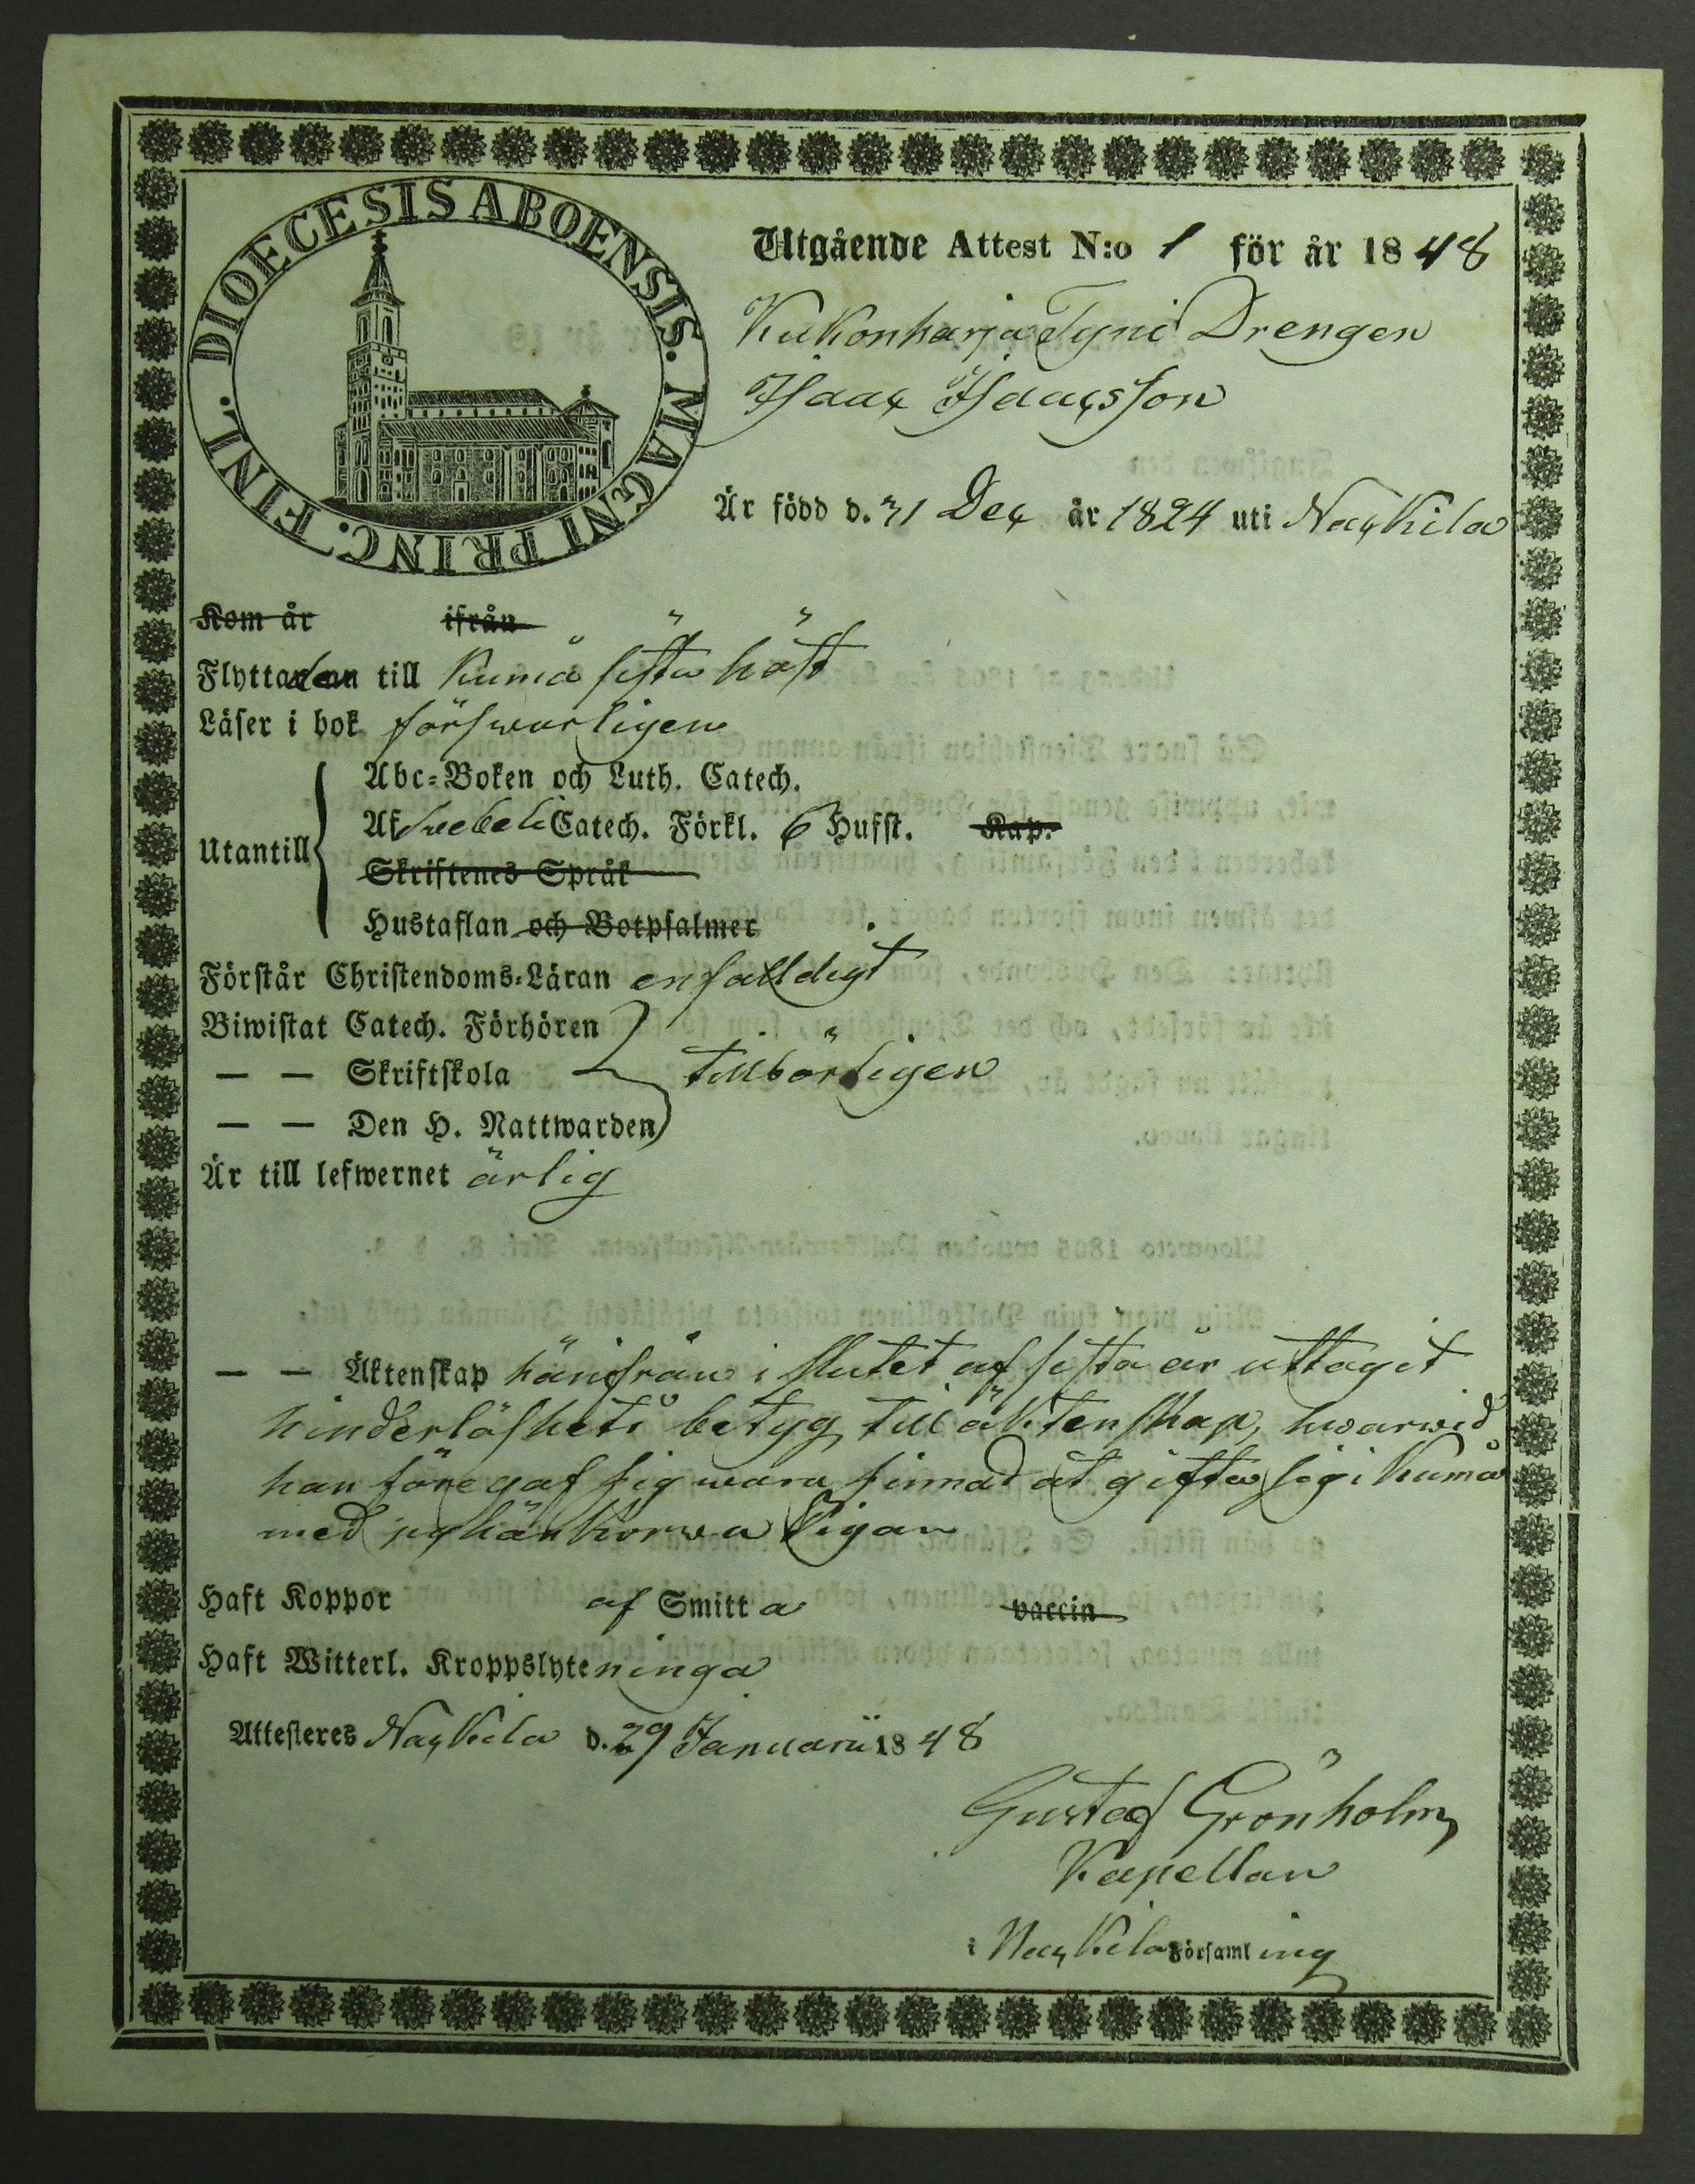 DIOECESIS ABOENSIS. MAGNI PRINC. FINL.
Utgående Attest N:o 1 för år 1848
Kukonharja Tyni Drengen
Isaac Isacsson
Är född d. 31 Dec år 1824 uti Nackila
Kom år ifrån
Flyttade till Kumo sista höst
Läser i bok försvarligen
Abc-Boken och Luth. Catech.
Utantill
Af Svebeli Catech. Förkl. 6 Hufst. Kap.
Skriftenes Språk
Hustaflan och Botpsalmer
Förstår Christendoms-Läran enfalldigt
Biwistat Catech. Förhören
— — Skriftskola tillbörligen
— — Den H. Nattwarden
Är till lefwernet ärlig
— — Äktenskap härifrån i slutet af sista år uttagit
hinderlöshets betyg till äktenskap, hwarwid
han föregaf sig wara sinnad at gifta sig i Kumo
med pigan
Haft Koppor af Smitta vaccin
Haft Witterl. Kroppslyte ninga
Attesteres Nackila d. 29 Januarii 1848
Gustaf Grönholm
Kapellan
i Nackila Församling